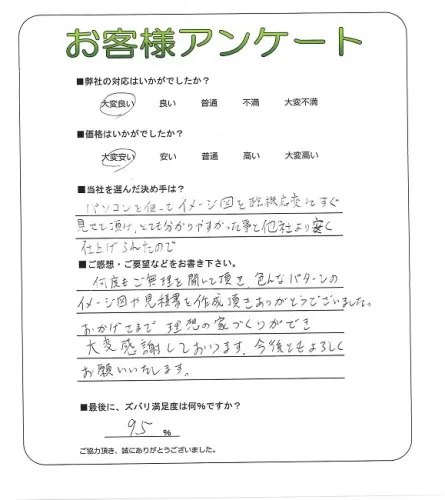 お客様アンケート
■弊社の対応はいかがでしたか?
大変良い 良い 普通 不満 大変不満
■価格はいかがでしたか?
大変安い 安い 普通 高い 大変高い
■当社を選んだ決め手は?
パソコンを使ってイメージ図を臨機応変にすぐ
見せて頂け、とても分かりやすかった事と他社より安く
仕上げられたので
■ご感想・ご要望などをお書き下さい。
何度もご無理を聞いて頂き、色んなパターンの
イメージ図や見積書を作成頂きありがとうございました。
おかげさまで理想の家づくりができ
大変感謝しております。今後ともよろしく
お願いいたします。
■最後に、ズバリ満足度は何%ですか?
95 %
ご協力頂き、誠にありがとうございました。